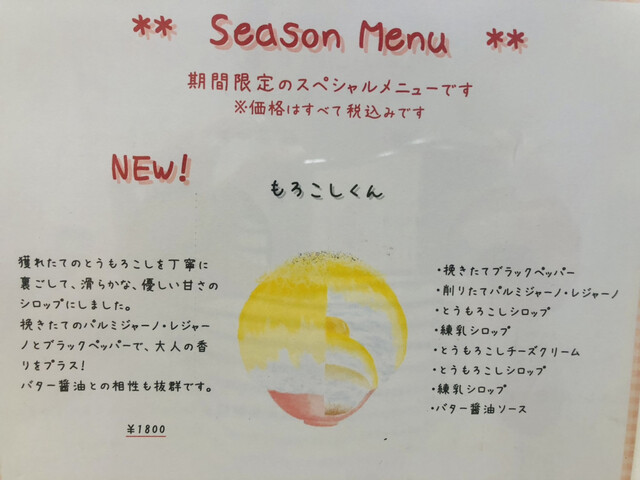 ** Season Menu **
期間限定のスペシャルメニューです
※価格はすべて税込みです
NEW!
もろこしくん
獲れたてのとうもろこしを丁寧に
裏ごして、滑らかな、優しい甘さの
シロップにしました。
挽きたてのパルミジャーノ・レジャー
ノとブラックペッパーで、大人の香
りをプラス!
バター醤油との相性も抜群です。
¥1800
・挽きたてブラックペッパー
・削りたてパルミジャーノ・レジャーノ
・とうもろこしシロップ
・練乳シロップ
・とうもろこしチーズクリーム
・とうもろこしシロップ
・練乳シロップ
・バター醤油ソース